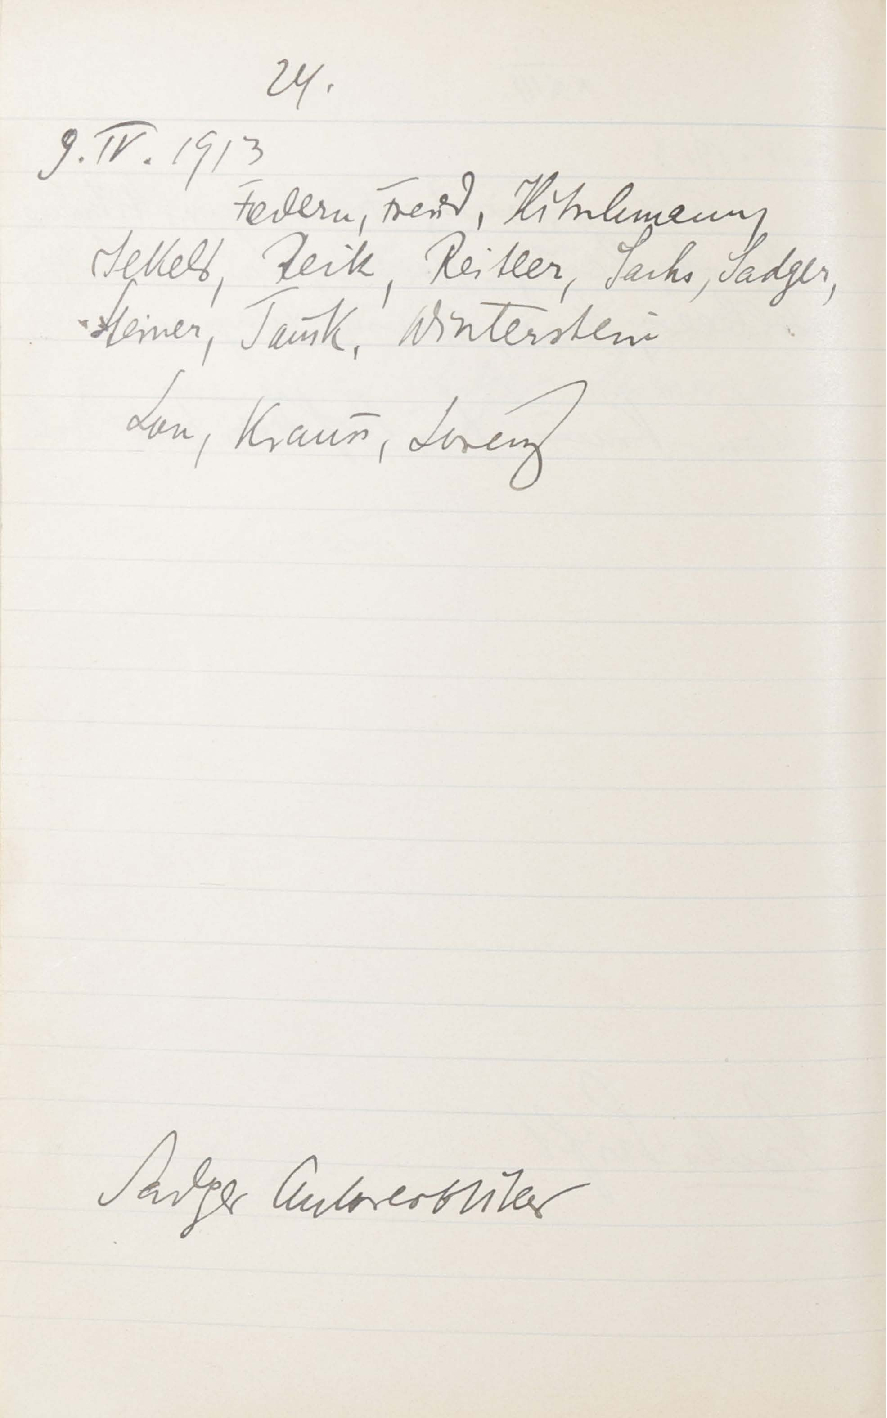 24.
9. IV. 1913
Federn, Freud, Hitschmann,
Jekels, Reik, Reitler, Sachs, Sadger,
Steiner, Tausk, Winterstein
Lou, Krauss, Lorenz
Sadger Autoerotiker